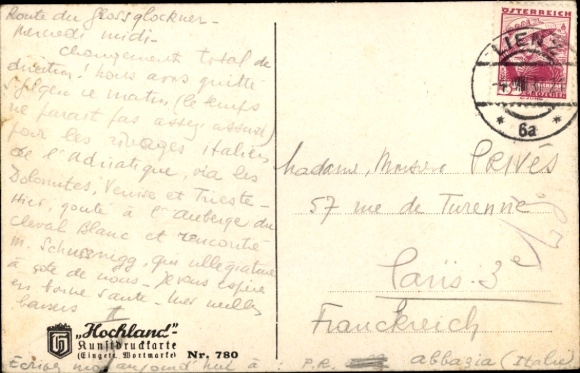 Route du Grossglockner -
Mercredi midi -
changement total de
direction. Nous avons quitté
ce matin (le temps
ne parait pas assez assuré)
pour les rivages italiens
de l'Adriatique, via les
Dolomites, Venise et Trieste -
Hier, gouté à l'auberge du
Cheval Blanc et rencontré
M. Schuschnigg, qui villégiature
à côté de nous - Je vous espère
en bonne santé - Meilleurs
baisers
"Hochland"-
Kunstdruckkarte
(Eingetr. Wortmarke) Nr. 780
Ecrire aujourd'hui à : P.R. abbazia (Italie)
ÖSTERREICH
GROSCHEN
LIENZ
6a
Madame, Monsieur PRIVÉS
57 rue de Turenne
Paris-3e
Franckreich